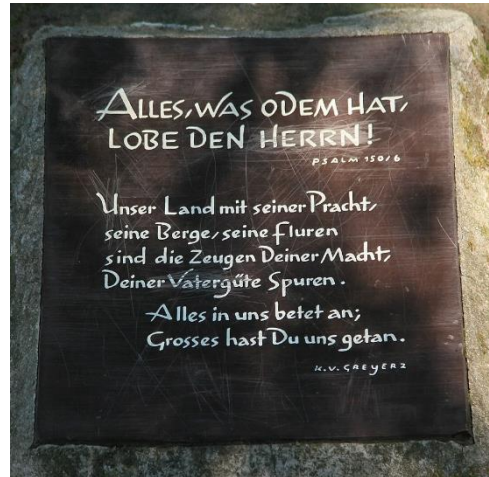 ALLES, WAS ODEM HAT,
LOBE DEN HERRN!
PSALM 150/6
Unser Land mit seiner Pracht,
seine Berge, seine Fluren
sind die Zeugen Deiner Macht,
Deiner Vatergüte Spuren.
Alles in uns betet an;
Grosses hast Du uns getan.
K.V. GREYERZ